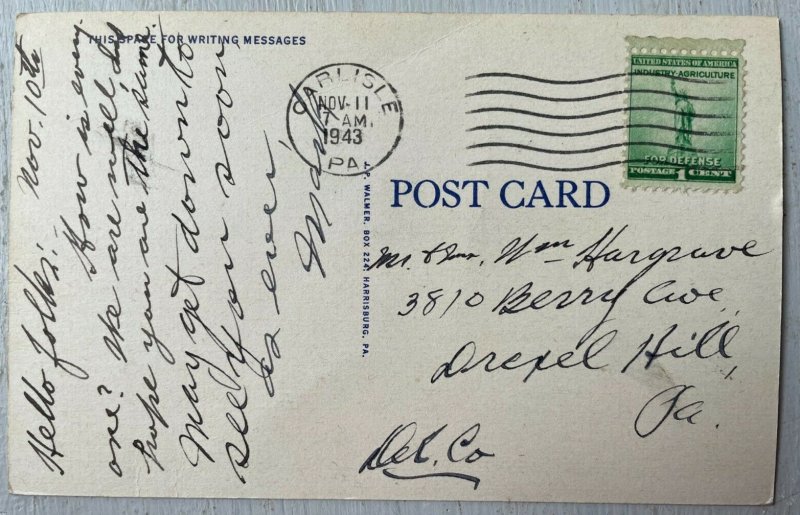 THIS SPACE FOR WRITING MESSAGES
Hello folks: Nov. 10th
How is every
one? We are well &
hope you are the same.
May get down to
see you soon
as ever,
CARLISLE
NOV 11
7 AM
1943
PA.
UNITED STATES OF AMERICA
INDUSTRY-AGRICULTURE
FOR DEFENSE
POSTAGE 1 CENT
J. P. WALMER, BOX 224, HARRISBURG, PA.
POST CARD
Mr. & Mrs. Wm Hargrave
3810 Berry Ave
Drexel Hill,
Pa.
Del. Co